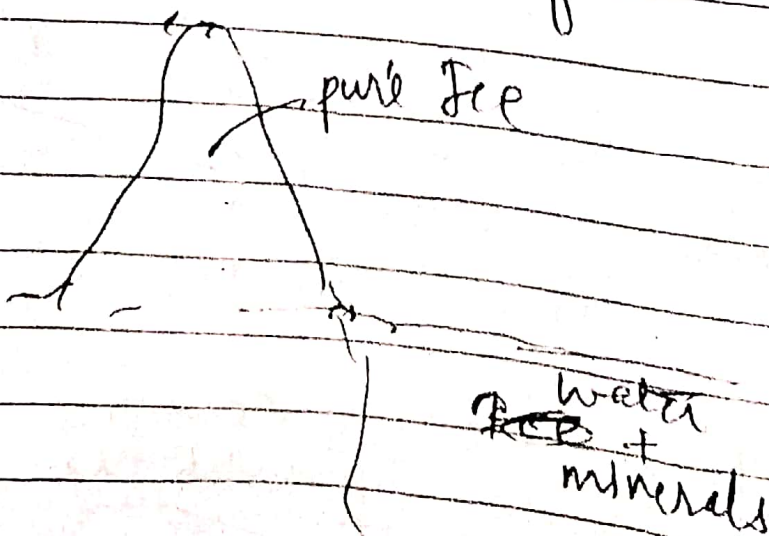 pure Ice
water
+
minerals